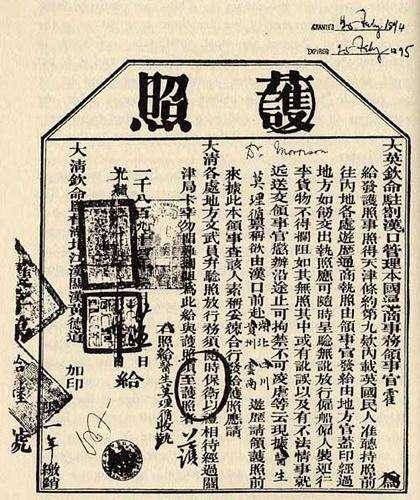 GRANTED 25 Feby 1894
EXPIRES 25 Feby 1895
護照
Dr. Morrison
大英欽命駐劄漢口管理本國通商事務領事官霍 為
給發護照事照得天津條約第九款內載英國民人准聽持照前
往內地各處遊歷通商執照由領事官發給由地方官蓋印經過
地方如飭交出執照應可隨時呈驗無訛放行僱船僱人裝運行
李貨物不得攔阻如其無照其中或有訛誤以及有不法情事就
近送交領事官懲辦沿途止可拘禁不可凌虐等云現據醫生
莫理循稟稱欲由漢口前赴湖北四川貴州雲南遊歷請領護照前
來據此本領事查該人素稱妥練合行發給護照應請
大清各處地方文武員弁驗照放行務須隨時保衛以禮相待經過關
津局卡幸勿留難攔阻為此給與護照須至護照者
護
右照給醫生莫理循收執
一千八百九十 日 給
光緒
大清欽命監督湖北江漢關漢黃德道 加印
限一年繳銷